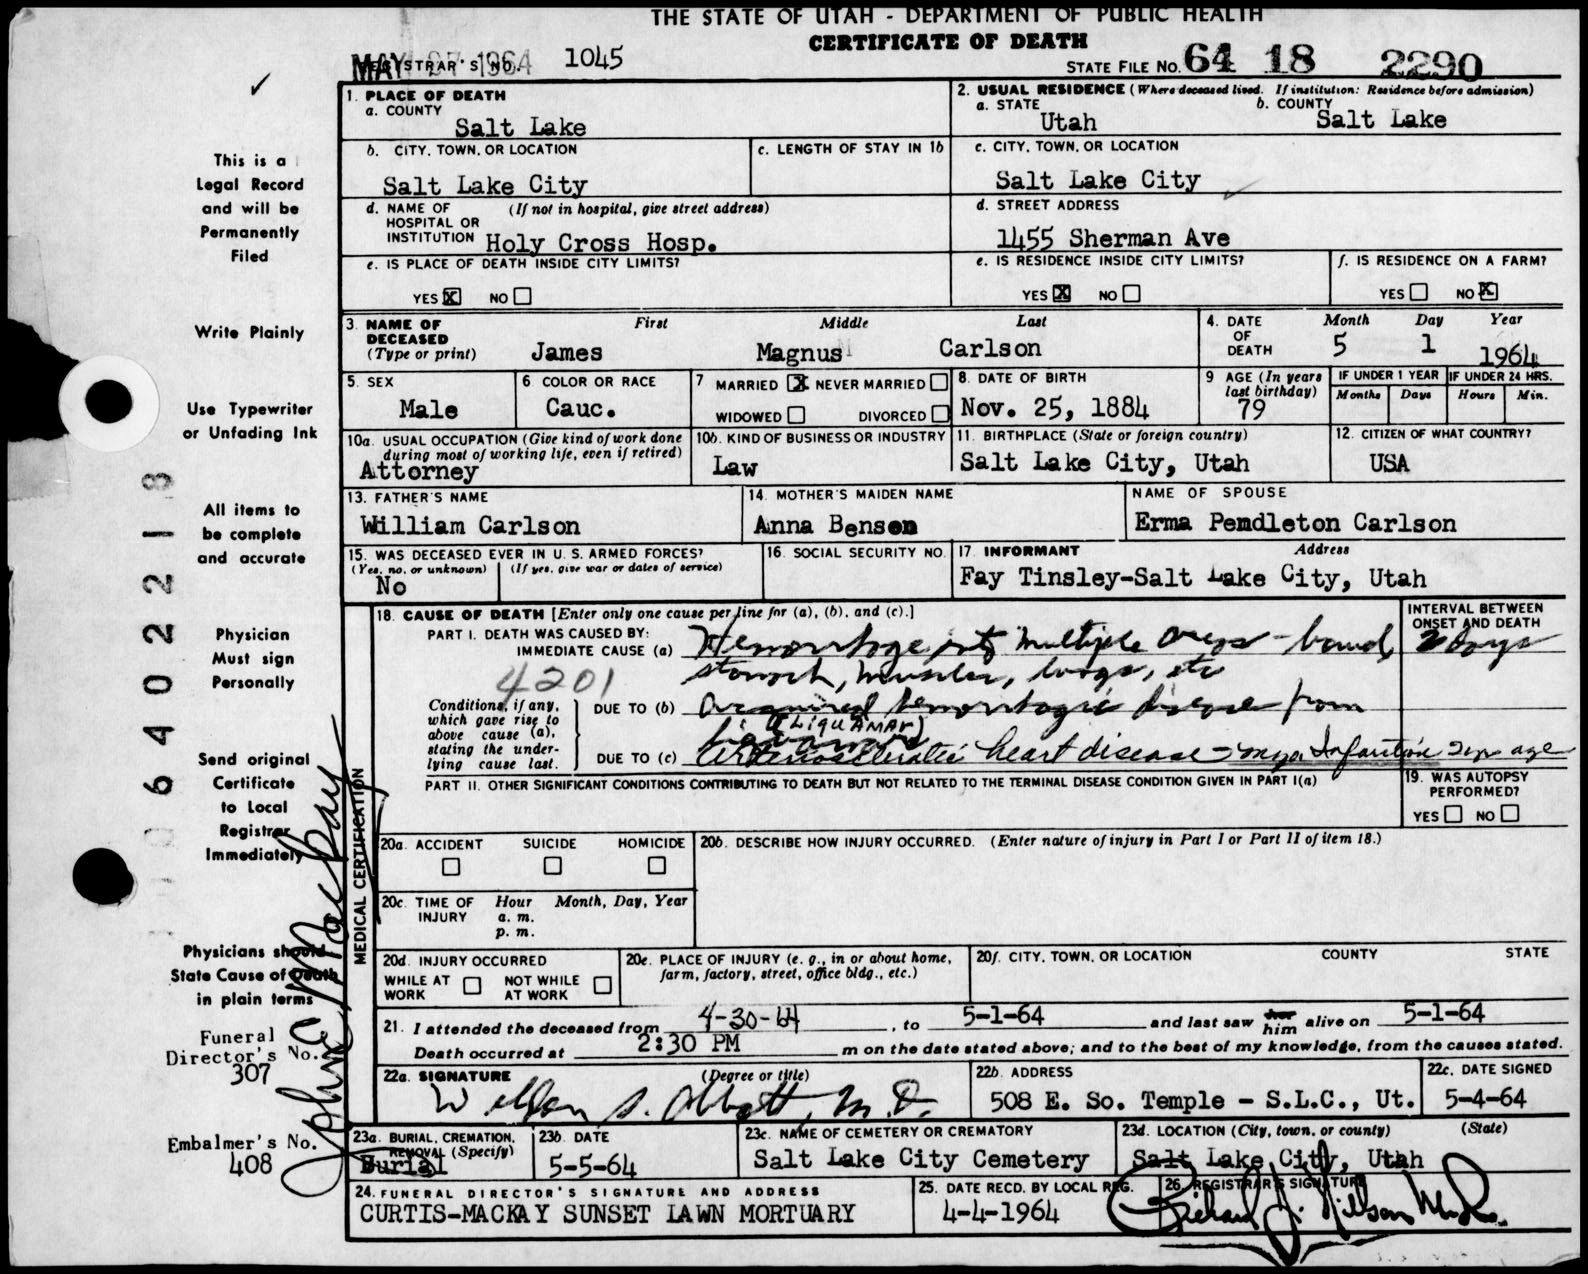 THE STATE OF UTAH - DEPARTMENT OF PUBLIC HEALTH
CERTIFICATE OF DEATH
MAY 27 1964
REGISTRAR'S NO. 1045
STATE FILE NO. 64 18 2290
1. PLACE OF DEATH
a. COUNTY
Salt Lake
2. USUAL RESIDENCE (Where deceased lived. If institution: Residence before admission)
a. STATE b. COUNTY
Utah Salt Lake
b. CITY, TOWN, OR LOCATION
Salt Lake City
c. LENGTH OF STAY IN 1b
c. CITY, TOWN, OR LOCATION
Salt Lake City
d. NAME OF HOSPITAL OR INSTITUTION (If not in hospital, give street address)
Holy Cross Hosp.
d. STREET ADDRESS
1455 Sherman Ave
e. IS PLACE OF DEATH INSIDE CITY LIMITS?
YES X NO
e. IS RESIDENCE INSIDE CITY LIMITS?
YES X NO
f. IS RESIDENCE ON A FARM?
YES NO X
3. NAME OF DECEASED (Type or print)
First Middle Last
James Magnus Carlson
4. DATE OF DEATH
Month Day Year
5 1 1964
5. SEX
Male
6 COLOR OR RACE
Cauc.
7 MARRIED X NEVER MARRIED
WIDOWED DIVORCED
8. DATE OF BIRTH
Nov. 25, 1884
9 AGE (In years last birthday)
79
IF UNDER 1 YEAR
Months Days
IF UNDER 24 HRS.
Hours Min.
10a. USUAL OCCUPATION (Give kind of work done during most of working life, even if retired)
Attorney
10b. KIND OF BUSINESS OR INDUSTRY
Law
11. BIRTHPLACE (State or foreign country)
Salt Lake City, Utah
12. CITIZEN OF WHAT COUNTRY?
USA
13. FATHER'S NAME
William Carlson
14. MOTHER'S MAIDEN NAME
Anna Benson
NAME OF SPOUSE
Erma Pendleton Carlson
15. WAS DECEASED EVER IN U. S. ARMED FORCES?
(Yes, no, or unknown) (If yes, give war or dates of service)
No
16. SOCIAL SECURITY NO.
17. INFORMANT Address
Fay Tinsley-Salt Lake City, Utah
18. CAUSE OF DEATH [Enter only one cause per line for (a), (b), and (c).]
INTERVAL BETWEEN ONSET AND DEATH
PART I. DEATH WAS CAUSED BY:
IMMEDIATE CAUSE (a) Hemorrhage into multiple areas - bowel, 2 days
stomach, muscles, lungs, etc
4201
Conditions, if any, which gave rise to above cause (a), stating the underlying cause last.
DUE TO (b) acquired hemorrhagic disease from
(LIQUAMAR)
DUE TO (c) arteriosclerotic heart disease - myo Infarction 2 yr ago
PART II. OTHER SIGNIFICANT CONDITIONS CONTRIBUTING TO DEATH BUT NOT RELATED TO THE TERMINAL DISEASE CONDITION GIVEN IN PART I(a)
19. WAS AUTOPSY PERFORMED?
YES NO
20a. ACCIDENT SUICIDE HOMICIDE
20b. DESCRIBE HOW INJURY OCCURRED. (Enter nature of injury in Part I or Part II of item 18.)
20c. TIME OF INJURY Hour Month, Day, Year
a. m.
p. m.
20d. INJURY OCCURRED
WHILE AT WORK NOT WHILE AT WORK
20e. PLACE OF INJURY (e. g., in or about home, farm, factory, street, office bldg., etc.)
20f. CITY, TOWN, OR LOCATION COUNTY STATE
21. I attended the deceased from 4-30-64, to 5-1-64 and last saw her him alive on 5-1-64
Death occurred at 2:30 PM m on the date stated above; and to the best of my knowledge, from the causes stated.
22a. SIGNATURE (Degree or title)
M.D.
22b. ADDRESS
508 E. So. Temple - S.L.C., Ut.
22c. DATE SIGNED
5-4-64
23a. BURIAL, CREMATION, REMOVAL (Specify)
Burial
23b. DATE
5-5-64
23c. NAME OF CEMETERY OR CREMATORY
Salt Lake City Cemetery
23d. LOCATION (City, town, or county) (State)
Salt Lake City, Utah
24. FUNERAL DIRECTOR'S SIGNATURE AND ADDRESS
CURTIS-MACKAY SUNSET LAWN MORTUARY
25. DATE RECD. BY LOCAL REG.
4-4-1964
26. REGISTRAR'S SIGNATURE
MEDICAL CERTIFICATION
This is a
Legal Record
and will be
Permanently
Filed
Write Plainly
Use Typewriter
or Unfading Ink
All items to
be complete
and accurate
Physician
Must sign
Personally
Send original
Certificate
to Local
Registrar
Immediately
Physicians should
State Cause of Death
in plain terms
Funeral
Director's No.
307
Embalmer's No.
408